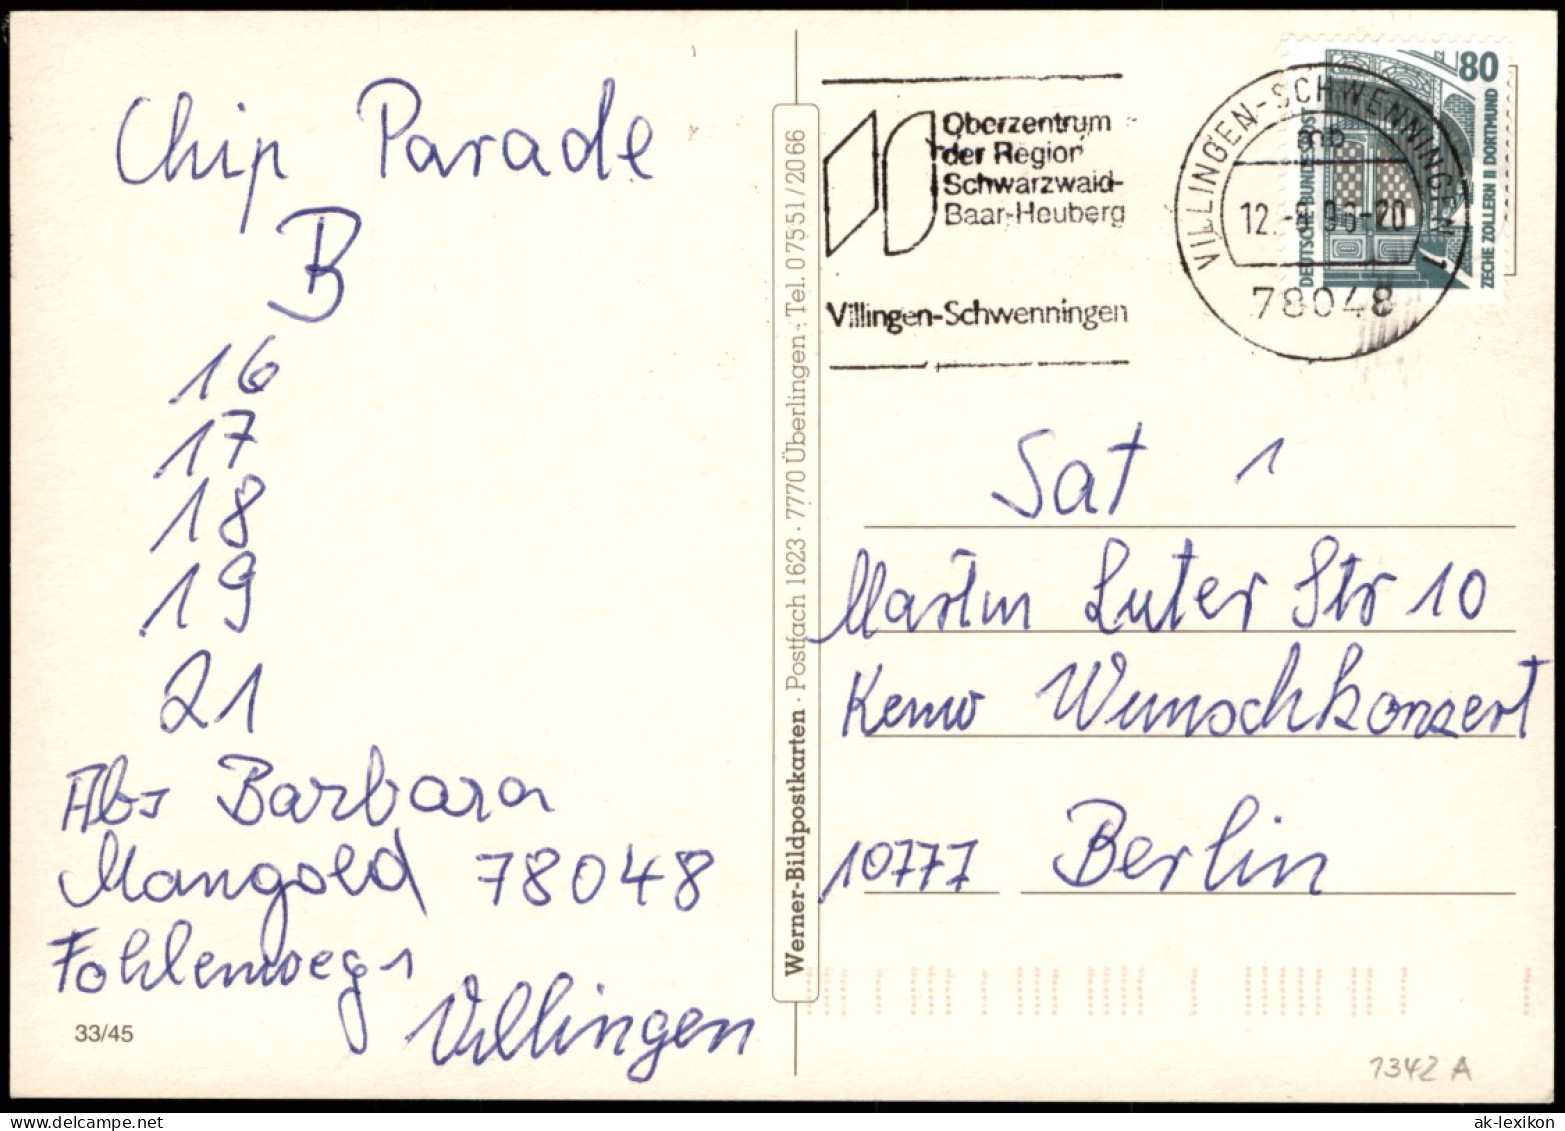 Chip Parade
B
16
17
18
19
21
Abs Barbara
Mangold 78048
Fohlenweg 1
Villingen
33/45
Werner-Bildpostkarten · Postfach 1623 · 7770 Überlingen · Tel. 07551/2066
Oberzentrum
der Region
Schwarzwald-
Baar-Heuberg
Villingen-Schwenningen
VILLINGEN-SCHWENNINGEN 1
mb
12.-8.96-20
78048
80
DEUTSCHE BUNDESPOST
ZECHE ZOLLERN II DORTMUND
Sat 1
Martin Luter Str 10
Kenw Wunschkonzert
10777 Berlin
1342 A
ak-lexikon.com